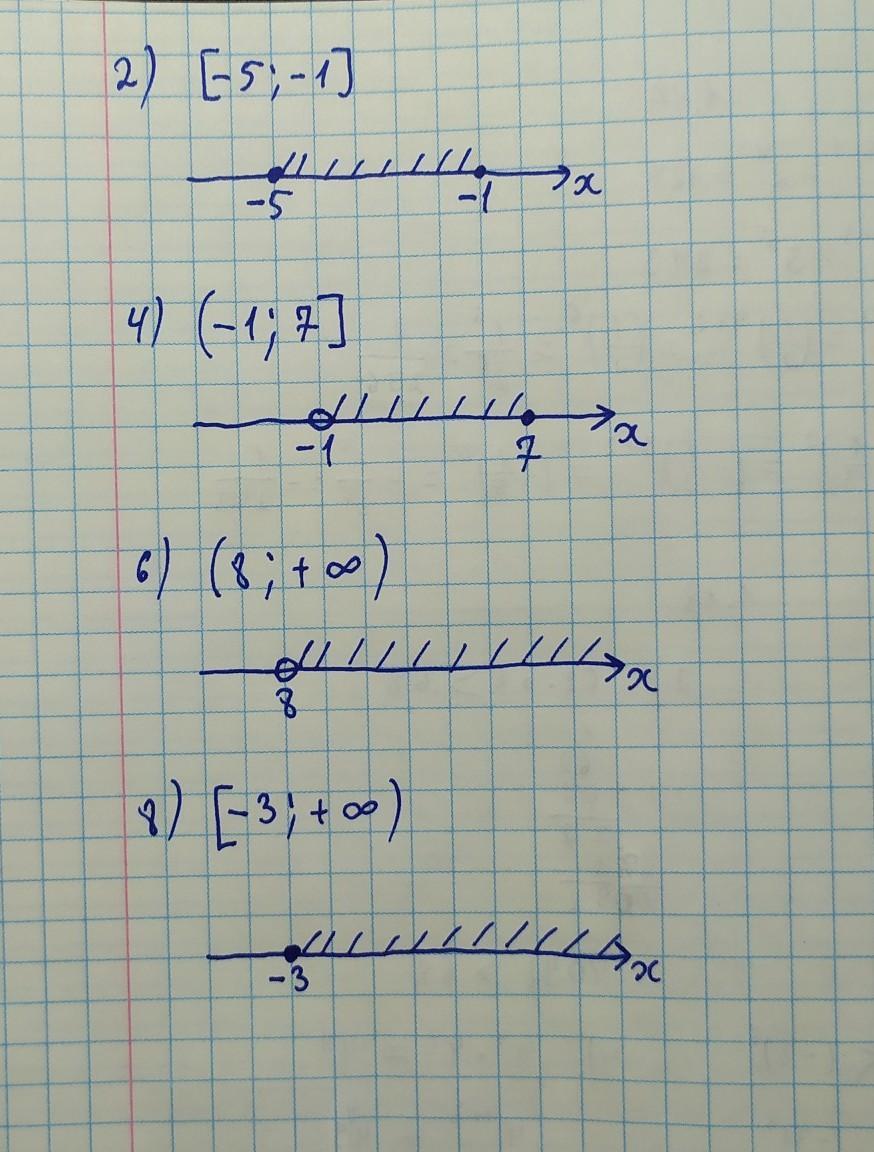 2) [-5; -1]
-5 -1 x
4) (-1; 7]
-1 7 x
6) (8; +∞)
8 x
8) [-3; +∞)
-3 x